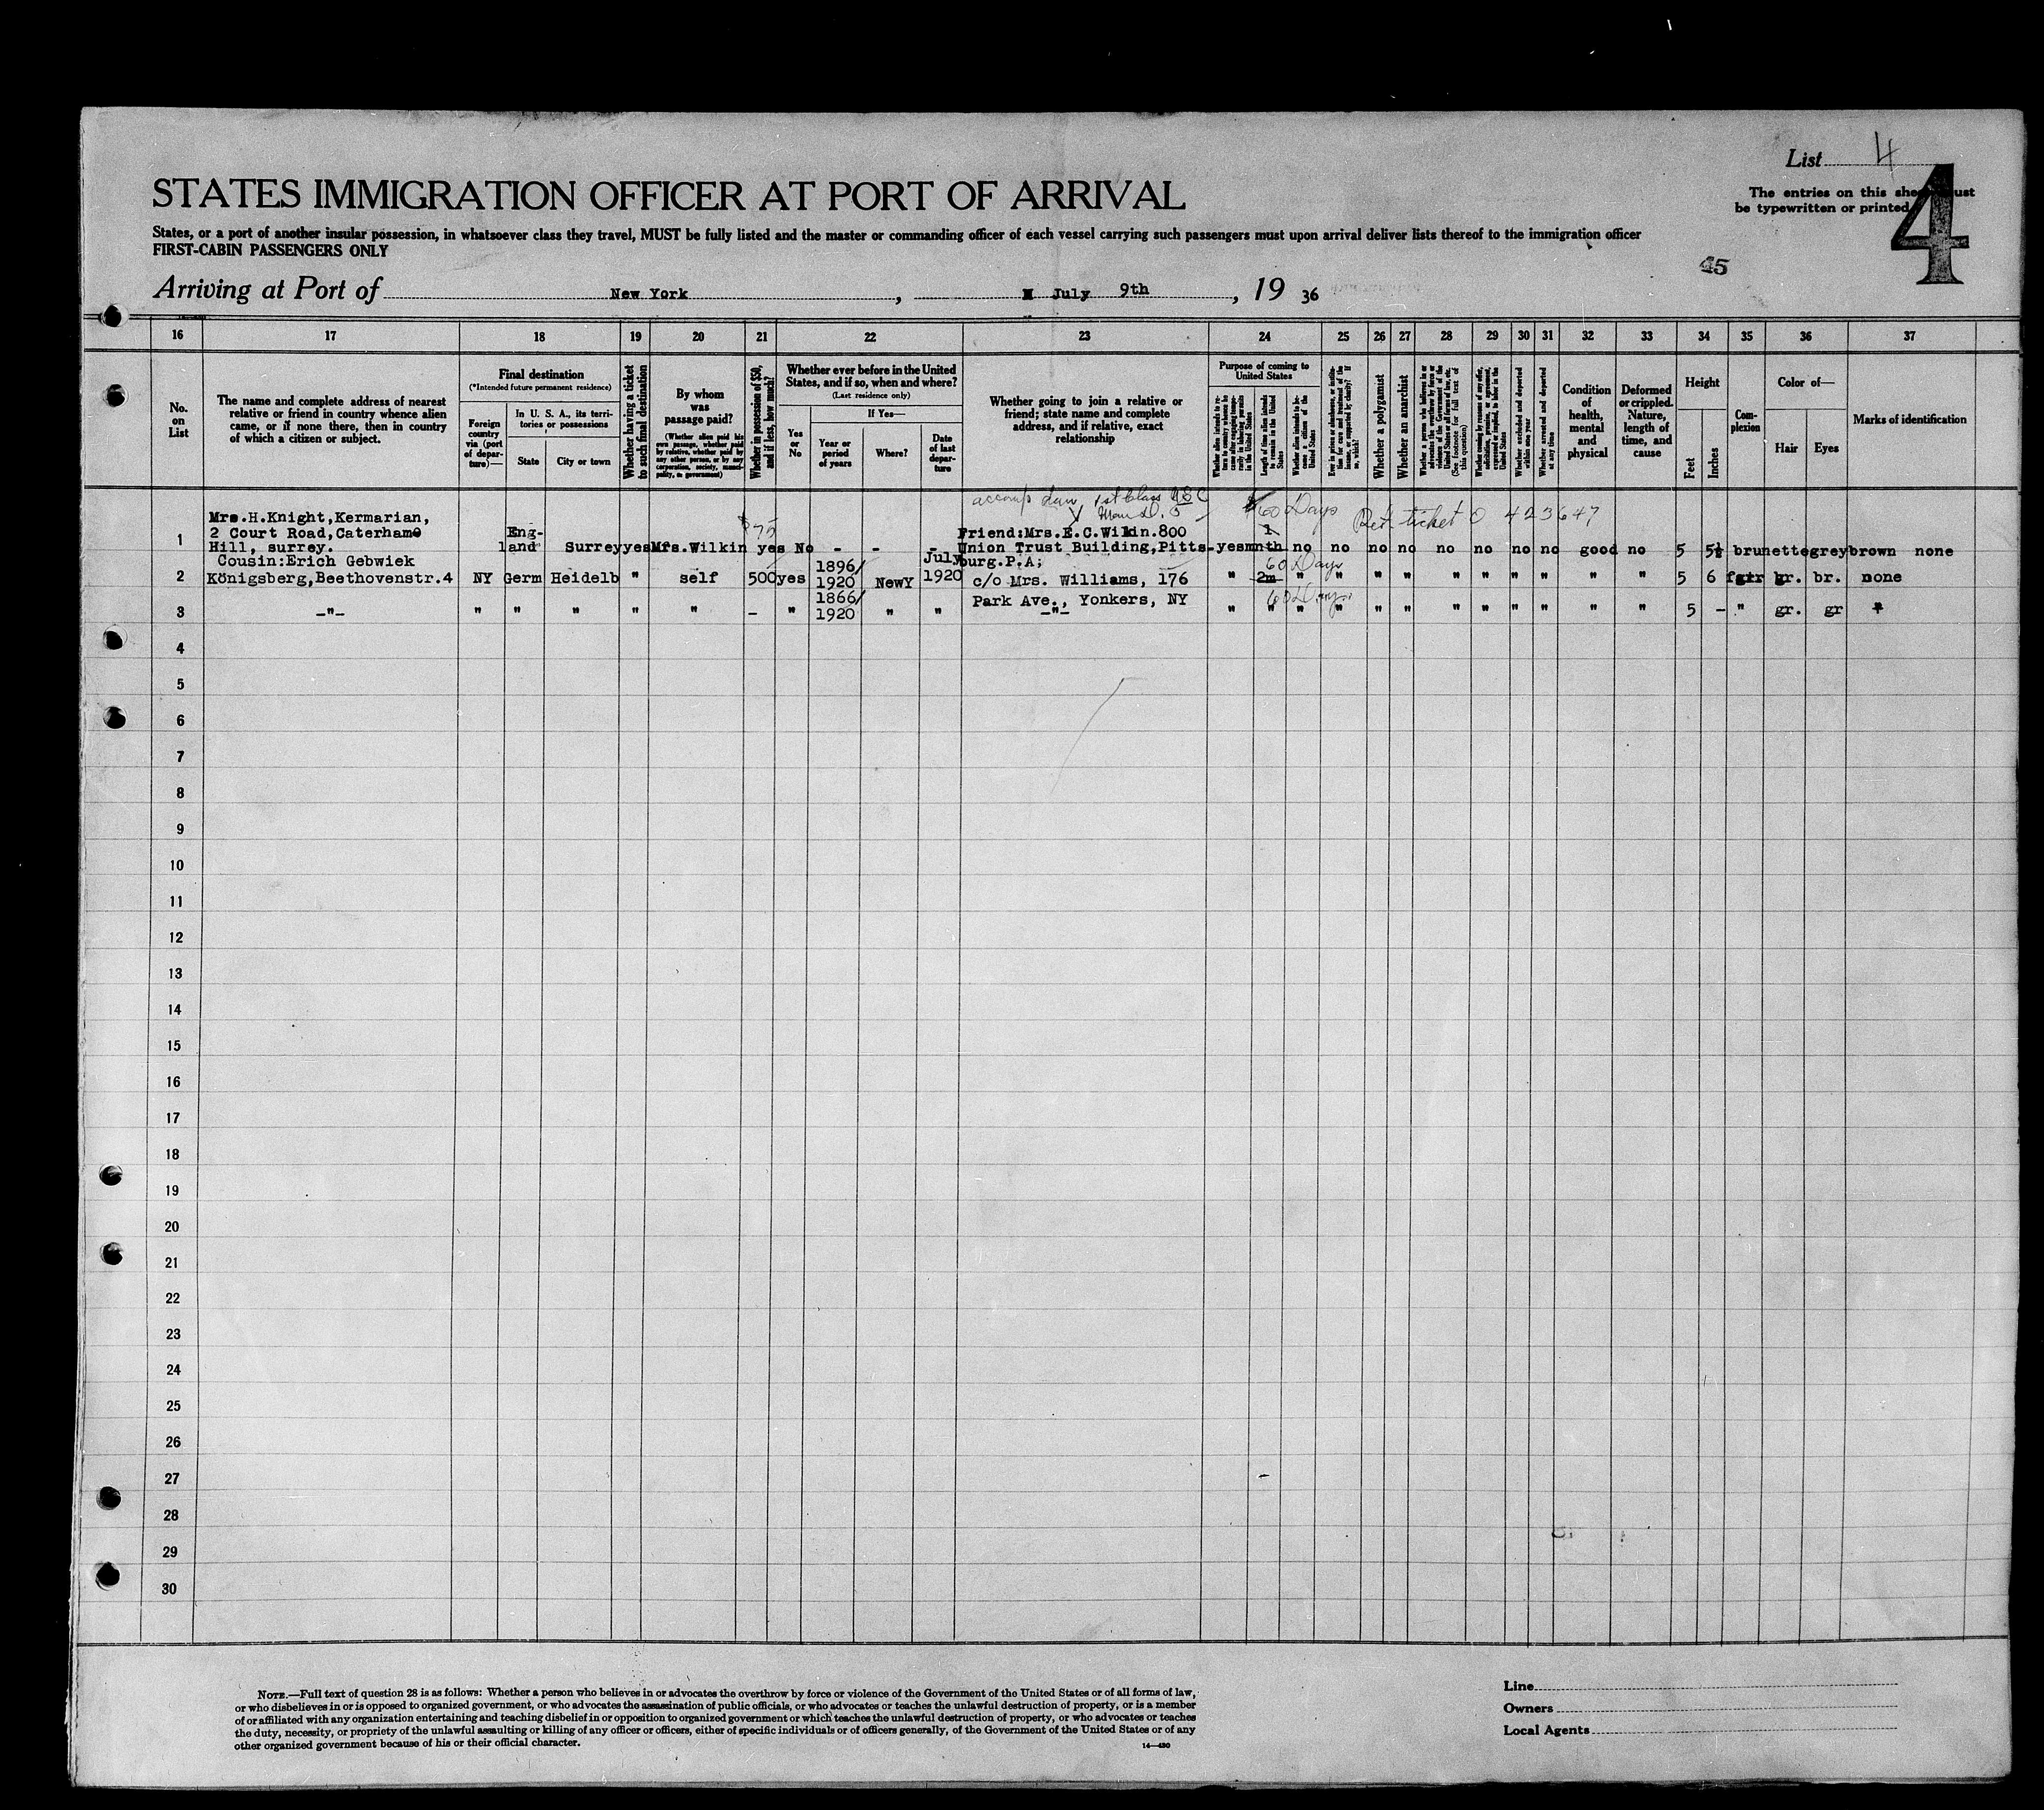 List 4
4
The entries on this sheet must
be typewritten or printed
STATES IMMIGRATION OFFICER AT PORT OF ARRIVAL
States, or a port of another insular possession, in whatsoever class they travel, MUST be fully listed and the master or commanding officer of each vessel carrying such passengers must upon arrival deliver lists thereof to the immigration officer
FIRST-CABIN PASSENGERS ONLY
45
Arriving at Port of New York, July 9th, 1936
16 17 18 19 20 21 22 23 24 25 26 27 28 29 30 31 32 33 34 35 36 37
No. on List
The name and complete address of nearest
relative or friend in country whence alien
came, or if none there, then in country
of which a citizen or subject.
Final destination
(*Intended future permanent residence)
Foreign country via (port of departure)—
In U. S. A., its territories or possessions
State
City or town
Whether having a ticket to such final destination
By whom was passage paid?
(Whether alien paid his own passage, whether paid by relative, whether paid by any other person, or by any corporation, society, municipality, or government)
Whether in possession of $50, and if less, how much?
Whether ever before in the United
States, and if so, when and where?
(Last residence only)
Yes or No
If Yes—
Year or period of years
Where?
Date of last departure
Whether going to join a relative or
friend; state name and complete
address, and if relative, exact
relationship
Purpose of coming to United States
Whether alien intends to return to country whence he came after engaging temporarily in laboring pursuits in the United States
Length of time alien intends to remain in the United States
Whether alien intends to become a citizen of the United States
Ever in prison or almshouse, or institution for care and treatment of the insane, or supported by charity? If so, which?
Whether a polygamist
Whether an anarchist
Whether a person who believes in or advocates the overthrow by force or violence of the Government of the United States or all forms of law, etc. (See footnote for full text of this question)
Whether coming by reason of any offer, solicitation, promise, or agreement, expressed or implied, to labor in the United States
Whether excluded and deported within one year
Whether arrested and deported at any time
Condition of health, mental and physical
Deformed or crippled. Nature, length of time, and cause
Height
Feet
Inches
Complexion
Color of—
Hair
Eyes
Marks of identification
1st Class
60 Days
Ret. ticket 0 423647
$75
1 Mrs.H.Knight,Kermarian,
2 Court Road,Caterham
Hill, surrey.
England Surrey yes Mrs.Wilkin yes No - - -
Friend:Mrs.E.C.Wilkin.800
Union Trust Building,Pitts-
burg.P.A;
yes 1 mnth no no no no no no no no good no 5 5½ brunette grey brown none
2 Cousin:Erich Gebwiek
Königsberg,Beethovenstr.4
NY Germ Heidelb " self 500 yes 1896/ 1920 NewY July 1920
c/o Mrs. Williams, 176
Park Ave., Yonkers, NY
60 Days
" 2m " " " " " " " " " " 5 6 fair gr. br. none
3 -"- " " " " " - " 1866/ 1920 " " -"-
60 Days
" " " " " " " " " " " " 5 - " gr. gr "
4
5
6
7
8
9
10
11
12
13
14
15
16
17
18
19
20
21
22
23
24
25
26
27
28
29
30
NOTE.—Full text of question 28 is as follows: Whether a person who believes in or advocates the overthrow by force or violence of the Government of the United States or of all forms of law,
or who disbelieves in or is opposed to organized government, or who advocates the assassination of public officials, or who advocates or teaches the unlawful destruction of property, or is a member
of or affiliated with any organization entertaining and teaching disbelief in or opposition to organized government or which teaches the unlawful destruction of property, or who advocates or teaches
the duty, necessity, or propriety of the unlawful assaulting or killing of any officer or officers, either of specific individuals or of officers generally, of the Government of the United States or of any
other organized government because of his or their official character.
14—430
Line
Owners
Local Agents